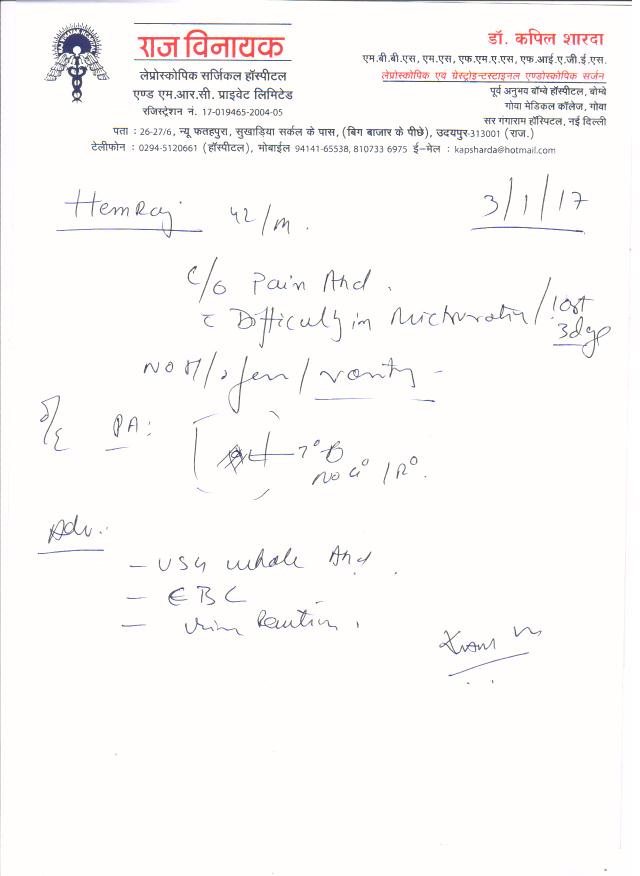 राज विनायक
लेप्रोस्कोपिक सर्जिकल हॉस्पीटल
एण्ड एम.आर.सी. प्राइवेट लिमिटेड
रजिस्ट्रेशन नं. 17-019465-2004-05
डॉ. कपिल शारदा
एम.बी.बी.एस, एम.एस, एफ.एम.ए.एस, एफ.आई.ए.जी.ई.एस.
लेप्रोस्कोपिक एवं गेस्ट्रोइन्टस्टाइनल एण्डोस्कोपिक सर्जन
पूर्व अनुभव बॉम्बे हॉस्पीटल, बोम्बे
गोवा मेडिकल कॉलेज, गोवा
सर गंगाराम हॉस्पिटल, नई दिल्ली
पता : 26-27/6, न्यू फतहपुरा, सुखाड़िया सर्कल के पास, (बिग बाजार के पीछे), उदयपुर-313001 (राज.)
टेलीफोन : 0294-5120661 (हॉस्पीटल), मोबाईल 94141-65538, 810733 6975 ई-मेल : kapsharda@hotmail.com
HemRaj 42/m. 3/1/17
c/o Pain Abd.
c Difficulty in Micturation /
3 days
No /
O/E PA:
No G° / R°.
Adv.
- USG whole Abd.
- CBC
- Urine Routine.